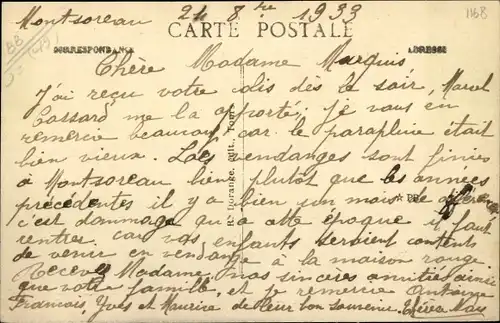 Montsoreau 24 8bre 1933
CARTE POSTALE
1168
CORRESPONDANCE
ADRESSE
Chère Madame Marquis
J'ai reçu votre colis dès le soir, Marcel
Cassard me l'a apporté. Je vous en
remercie beaucoup car le parapluie était
bien vieux. Les vendanges sont finies
à Montsoreau bien plutôt que les années
précédentes il y a bien un mois de différence
c'est dommage qu'a cette époque il faut
rentrer car vos enfants seraient contents
de venir en vendange à la maison rouge
Recevez Madame, nos sincères amitiés ainsi
que votre famille, et je remercie Antoine
Francois, Yves et Maurice de leur bon souvenir.